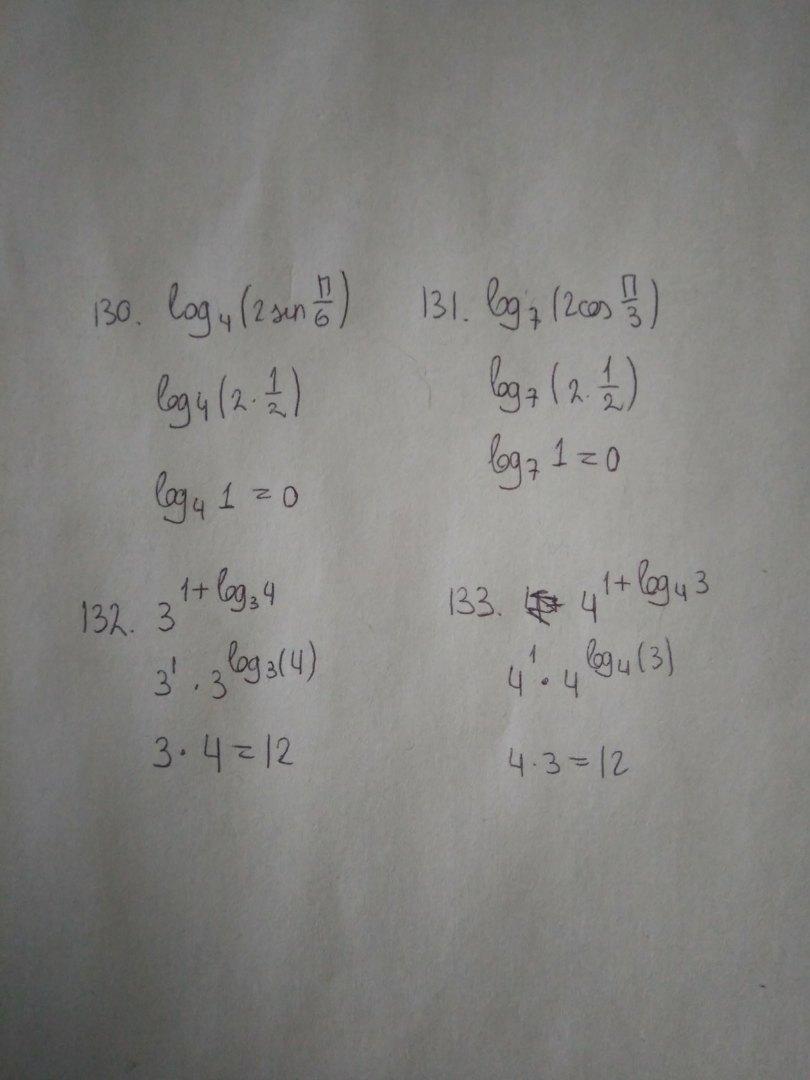 130. log₄(2sin π/6)
log₄(2·1/2)
log₄ 1 = 0
131. log₇(2cos π/3)
log₇(2·1/2)
log₇ 1 = 0
132. 3^(1+log₃4)
3¹ · 3^(log₃(4))
3 · 4 = 12
133. 4^(1+log₄3)
4¹ · 4^(log₄(3))
4 · 3 = 12